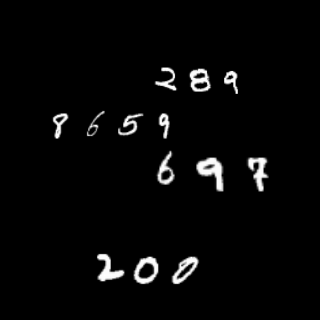 289
8659
697
200